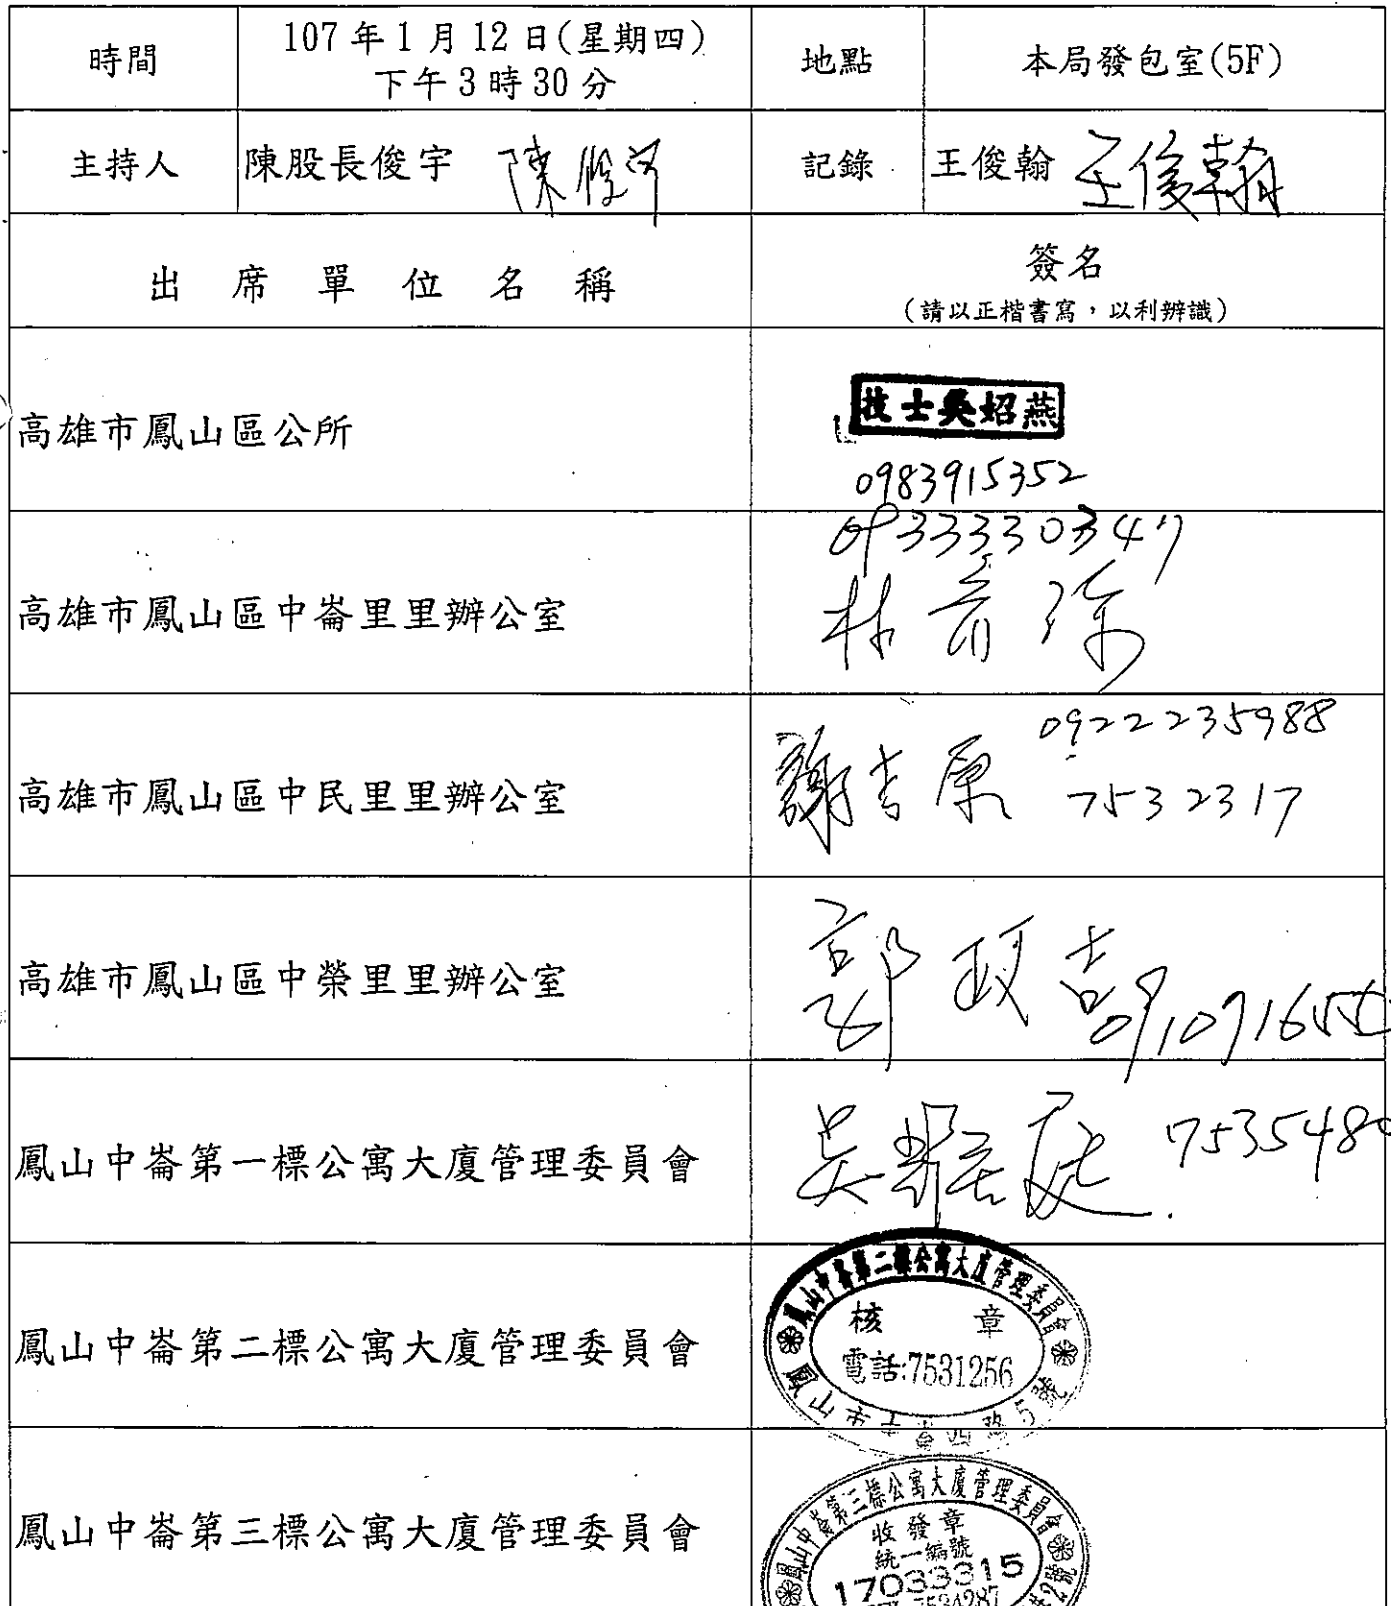 時間
107年1月12日(星期四)
下午3時30分
地點
本局發包室(5F)
主持人
陳股長俊宇
記錄
王俊翰 王俊翰
出席單位名稱
簽名
(請以正楷書寫，以利辨識)
高雄市鳳山區公所
技士吳炤燕
0983915352
高雄市鳳山區中崙里里辦公室
0933330347
高雄市鳳山區中民里里辦公室
謝吉原
0922235988
7532317
高雄市鳳山區中榮里里辦公室
郭政吉
鳳山中崙第一標公寓大廈管理委員會
7535480
鳳山中崙第二標公寓大廈管理委員會
鳳山中崙第二標公寓大廈管理委員會
核章
電話:7531256
鳳山中崙第三標公寓大廈管理委員會
鳳山中崙第三標公寓大廈管理委員會
收發章
統一編號
17033315
7534287